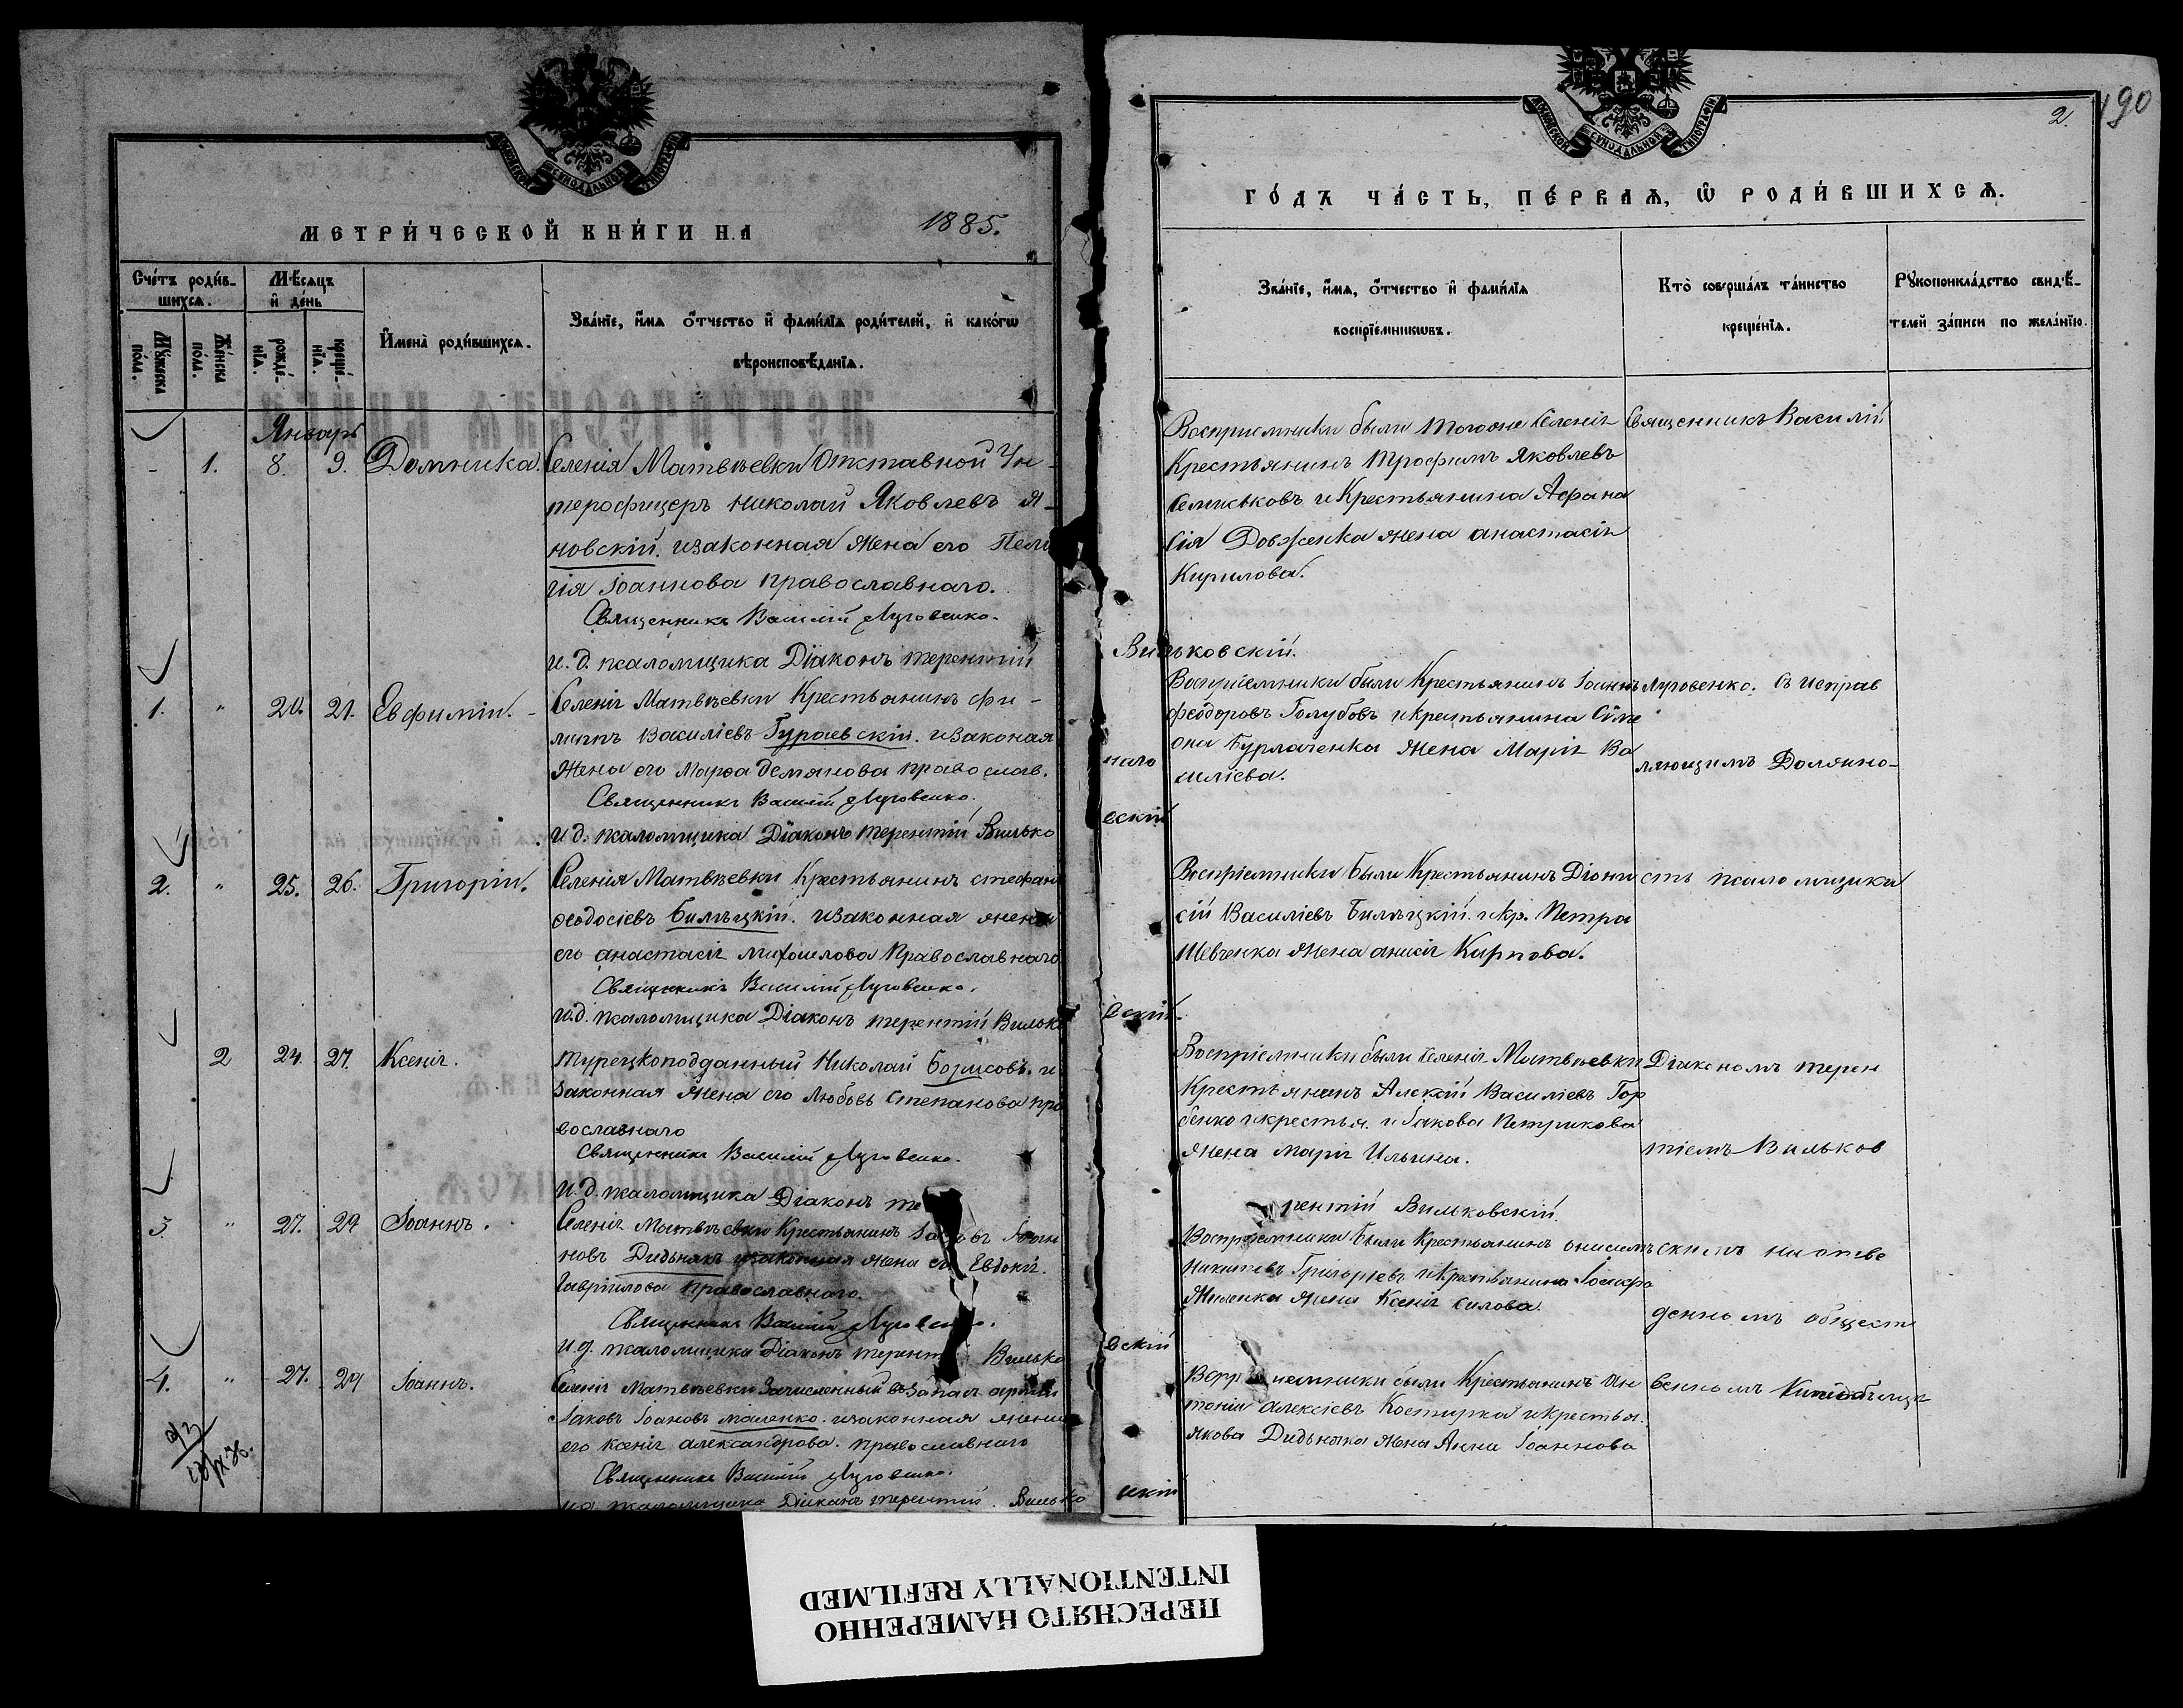 МОСКОВСКОЙ СѴНОДАЛЬНОЙ ТИПОГРАФІИ
МЕТРИ́ЧЕСКОЙ КНИ́ГИ НА 1885.
Сче́тъ роди́в-
шихсѧ.
Мѣ́сѧцъ
и҆ де́нь
Мꙋ́жеска
по́ла.
Же́нска
по́ла.
рожде́-
нїѧ.
креще́-
нїѧ.
И҆мена̀ роди́вшихсѧ.
Зва́нїе, и҆́мѧ ѻ҆́тчество и҆ фами́лїѧ роди́телей, и҆ како́гѡ
вѣроисповѣ́данїѧ.
Январь
- 1. 8. 9. Домника. Селенія Матвѣевки Отставной Ун-
терофицеръ Николай Яковлевъ Я-
новскій. изаконная жена его Пела
гія Іоаннова православнаго.
Священникъ Василій Луговенко.
и. д. псаломщика Діаконъ терентій
1. " 20. 21. Евфимій. - Селенія Матвѣевки Крестьянинъ Фи-
липъ Василіевъ Гураевскій. изаконая
жена его Марѳа демянова православ.
Священникъ Василій Луговенко.
и д. псаломщика Діаконъ терентій Вилько
2. " 25. 26. Григорій. Селенія Матвѣевки Крестьянинъ стефанъ
феодосіевъ Билѣцкій. изаконная жена
его анастасія михаилова Православнаго
Священникъ Василій Луговенко.
и.д. псаломщика Діаконъ терентій Вилько
2 24. 27. Ксенія. турецкоподданный Николай Борисовъ. и
законная жена его Любовь Степанова пра
вославнаго
Священникъ Василій Луговенко.
и. д. псаломщика Діаконъ те
3. " 27. 29 Іоаннъ. Селенія Матвѣевки Крестьянинъ Іаковъ Іоан
новъ Дидьнякъ изаконная жена его Евдокія
Гавріилова православнаго.
Священникъ Василій Луговенко.
и.д. псаломщика Діаконъ терентій Вилько
4. " 27. 29 Іоаннъ. Селенія Матвѣевки Зачисленный въ запасъ арміи
Іаковъ Іоановъ маленко. изаконная жена
его ксенія александрова. православнаго
Священникъ Василій Луговенко.
и д. псаломщика Діаконъ терентій. Вилько
МОСКОВСКОЙ СѴНОДАЛЬНОЙ ТИПОГРАФІИ
2. 190
ГО́ДЪ ЧА́СТЬ, ПЕ́РВАѦ, Ѡ҆ РОДИ́ВШИХСѦ.
Зва́нїе, и҆́мѧ, ѻ҆́тчество и҆ фами́лїѧ
воспрїе́мникѡвъ.
Кто̀ соверша́лъ та́инство
креще́нїѧ.
Рꙋкоприкла́дство свидѣ́-
телей за́писи по жела́нїю.
Восприемники были тогоже Селенія
Крестьянинъ Трофимъ Яковлевъ
и Крестьянина Афана
сія Довженка жена анастасія
Кирилова.
Священникъ Василій
Вильковскій.
Воспріемники были Крестьянинъ Іоаннъ
феодоровъ Голубовъ икрестьянина Симе
она Бурлаченка жена Марія Ва
силіева.
Луговенко. съ исправ
ляющимъ Должно-
наго
вскій
Воспріемники были Крестьянинъ Діони
сій Василіевъ Билѣцкій. икр. Петра
Шевченка жена анисія Карпова.
сть псаломщика
вскій.
Воспріемники были селенія Матвѣевки
Крестьянинъ Алексій Василіевъ Гор
бенко икрестья. и Іакова Петрикова
жена марія Ильина.
Діакономъ терен
тіемъ Вильков
рентій Вильковскій.
Воспріемники были Крестьянинъ онисимъ
Никитевъ Григорьевъ икрестьянина Іосифа
жена Ксенія Силова.
скимъ на отве
денномъ общест
вскій
Воспріемники были Крестьянинъ Ан
тоній алексіевъ Костирка икрестья.
якова Дидьняка жена Анна Іоаннова
венномъ
вскій
ПЕРЕСНЯТО НАМЕРЕННО
INTENTIONALLY REFILMED